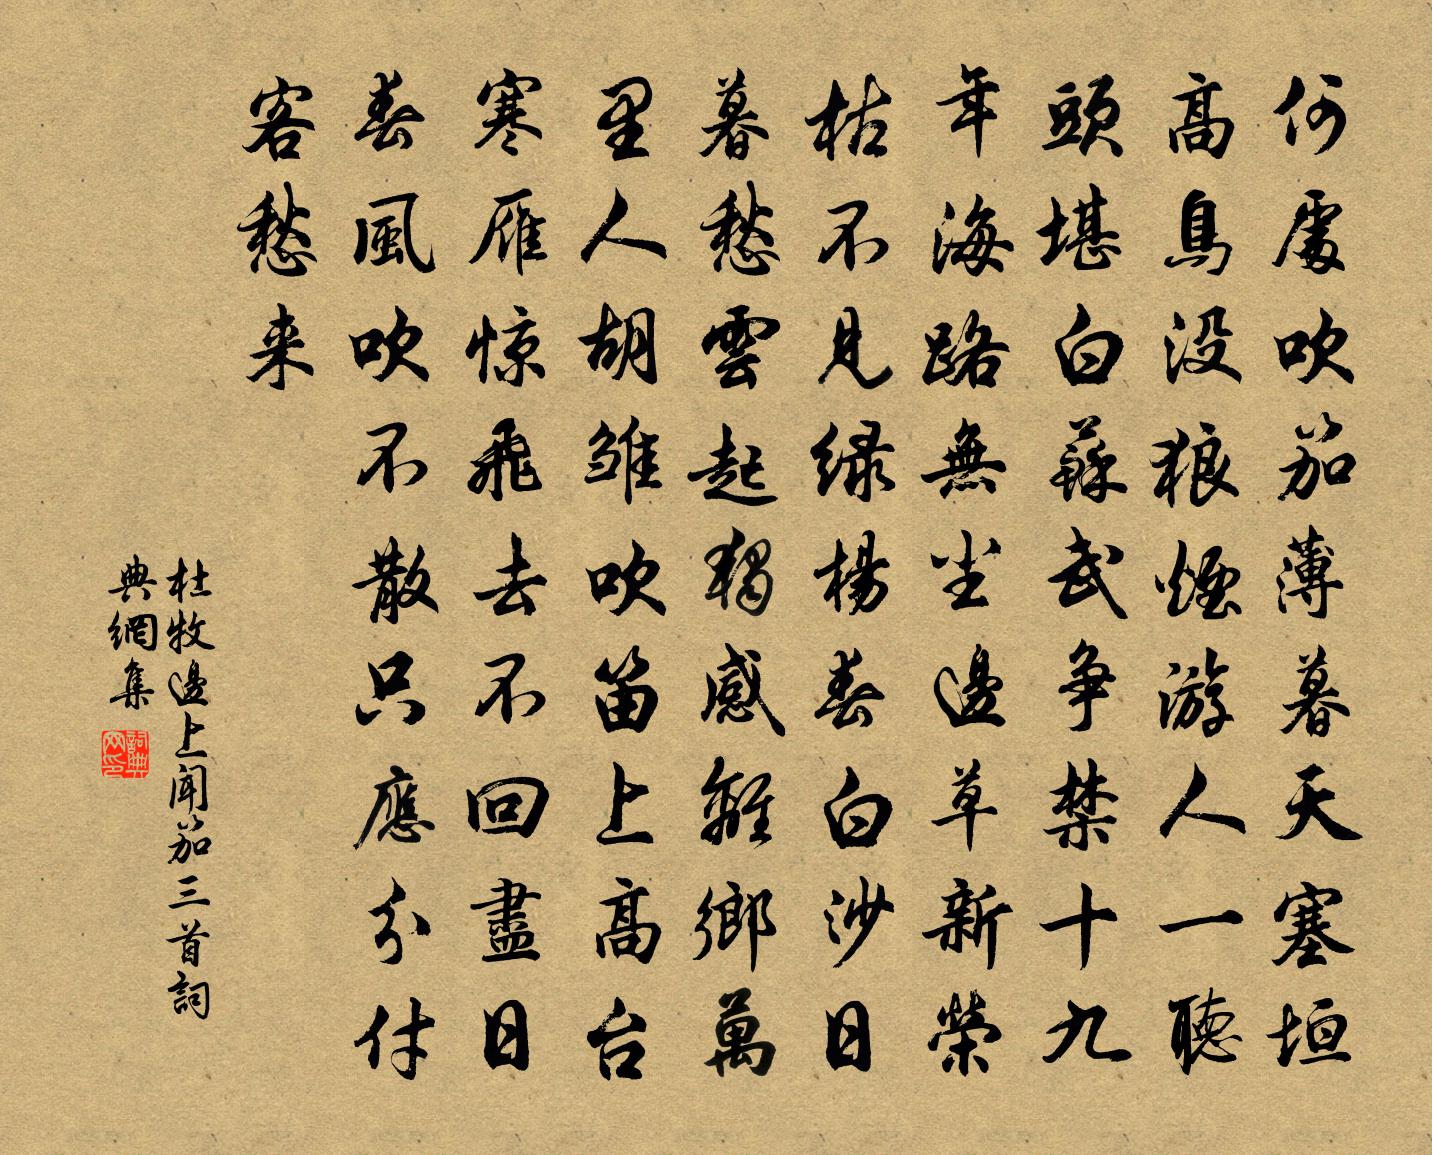 何處吹笳薄暮天塞垣
高鳥没狼煙游人一聽
頭堪白蘇武争禁十九
年海路無尘邊草新榮
枯不見绿楊春白沙日
暮愁雲起獨感離鄉萬
里人胡雏吹笛上高台
寒雁惊飛去不回盡日
春風吹不散只應分付
客愁来
杜牧邊上闻笳三首詞
典網集
詞典
网印